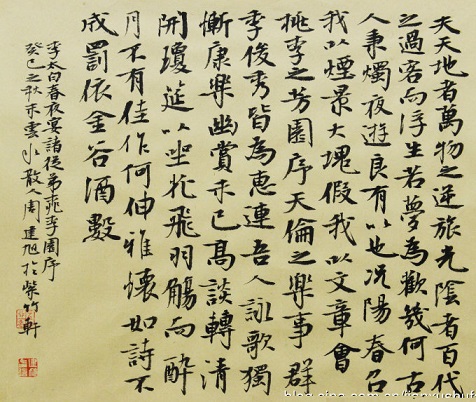 夫天地者萬物之逆旅光陰者百代
之過客而浮生若夢為歡幾何古
人秉燭夜遊良有以也況陽春召
我以煙景大塊假我以文章會
桃李之芳園序天倫之樂事群
季俊秀皆為惠連吾人詠歌獨
慚康樂幽賞未已高談轉清
開瓊筵以坐花飛羽觴而醉
月不有佳作何伸雅懷如詩不
成罰依金谷酒數
李太白春夜宴諸從弟桃李園序
癸巳之秋雲水散人周建旭於紫竹軒